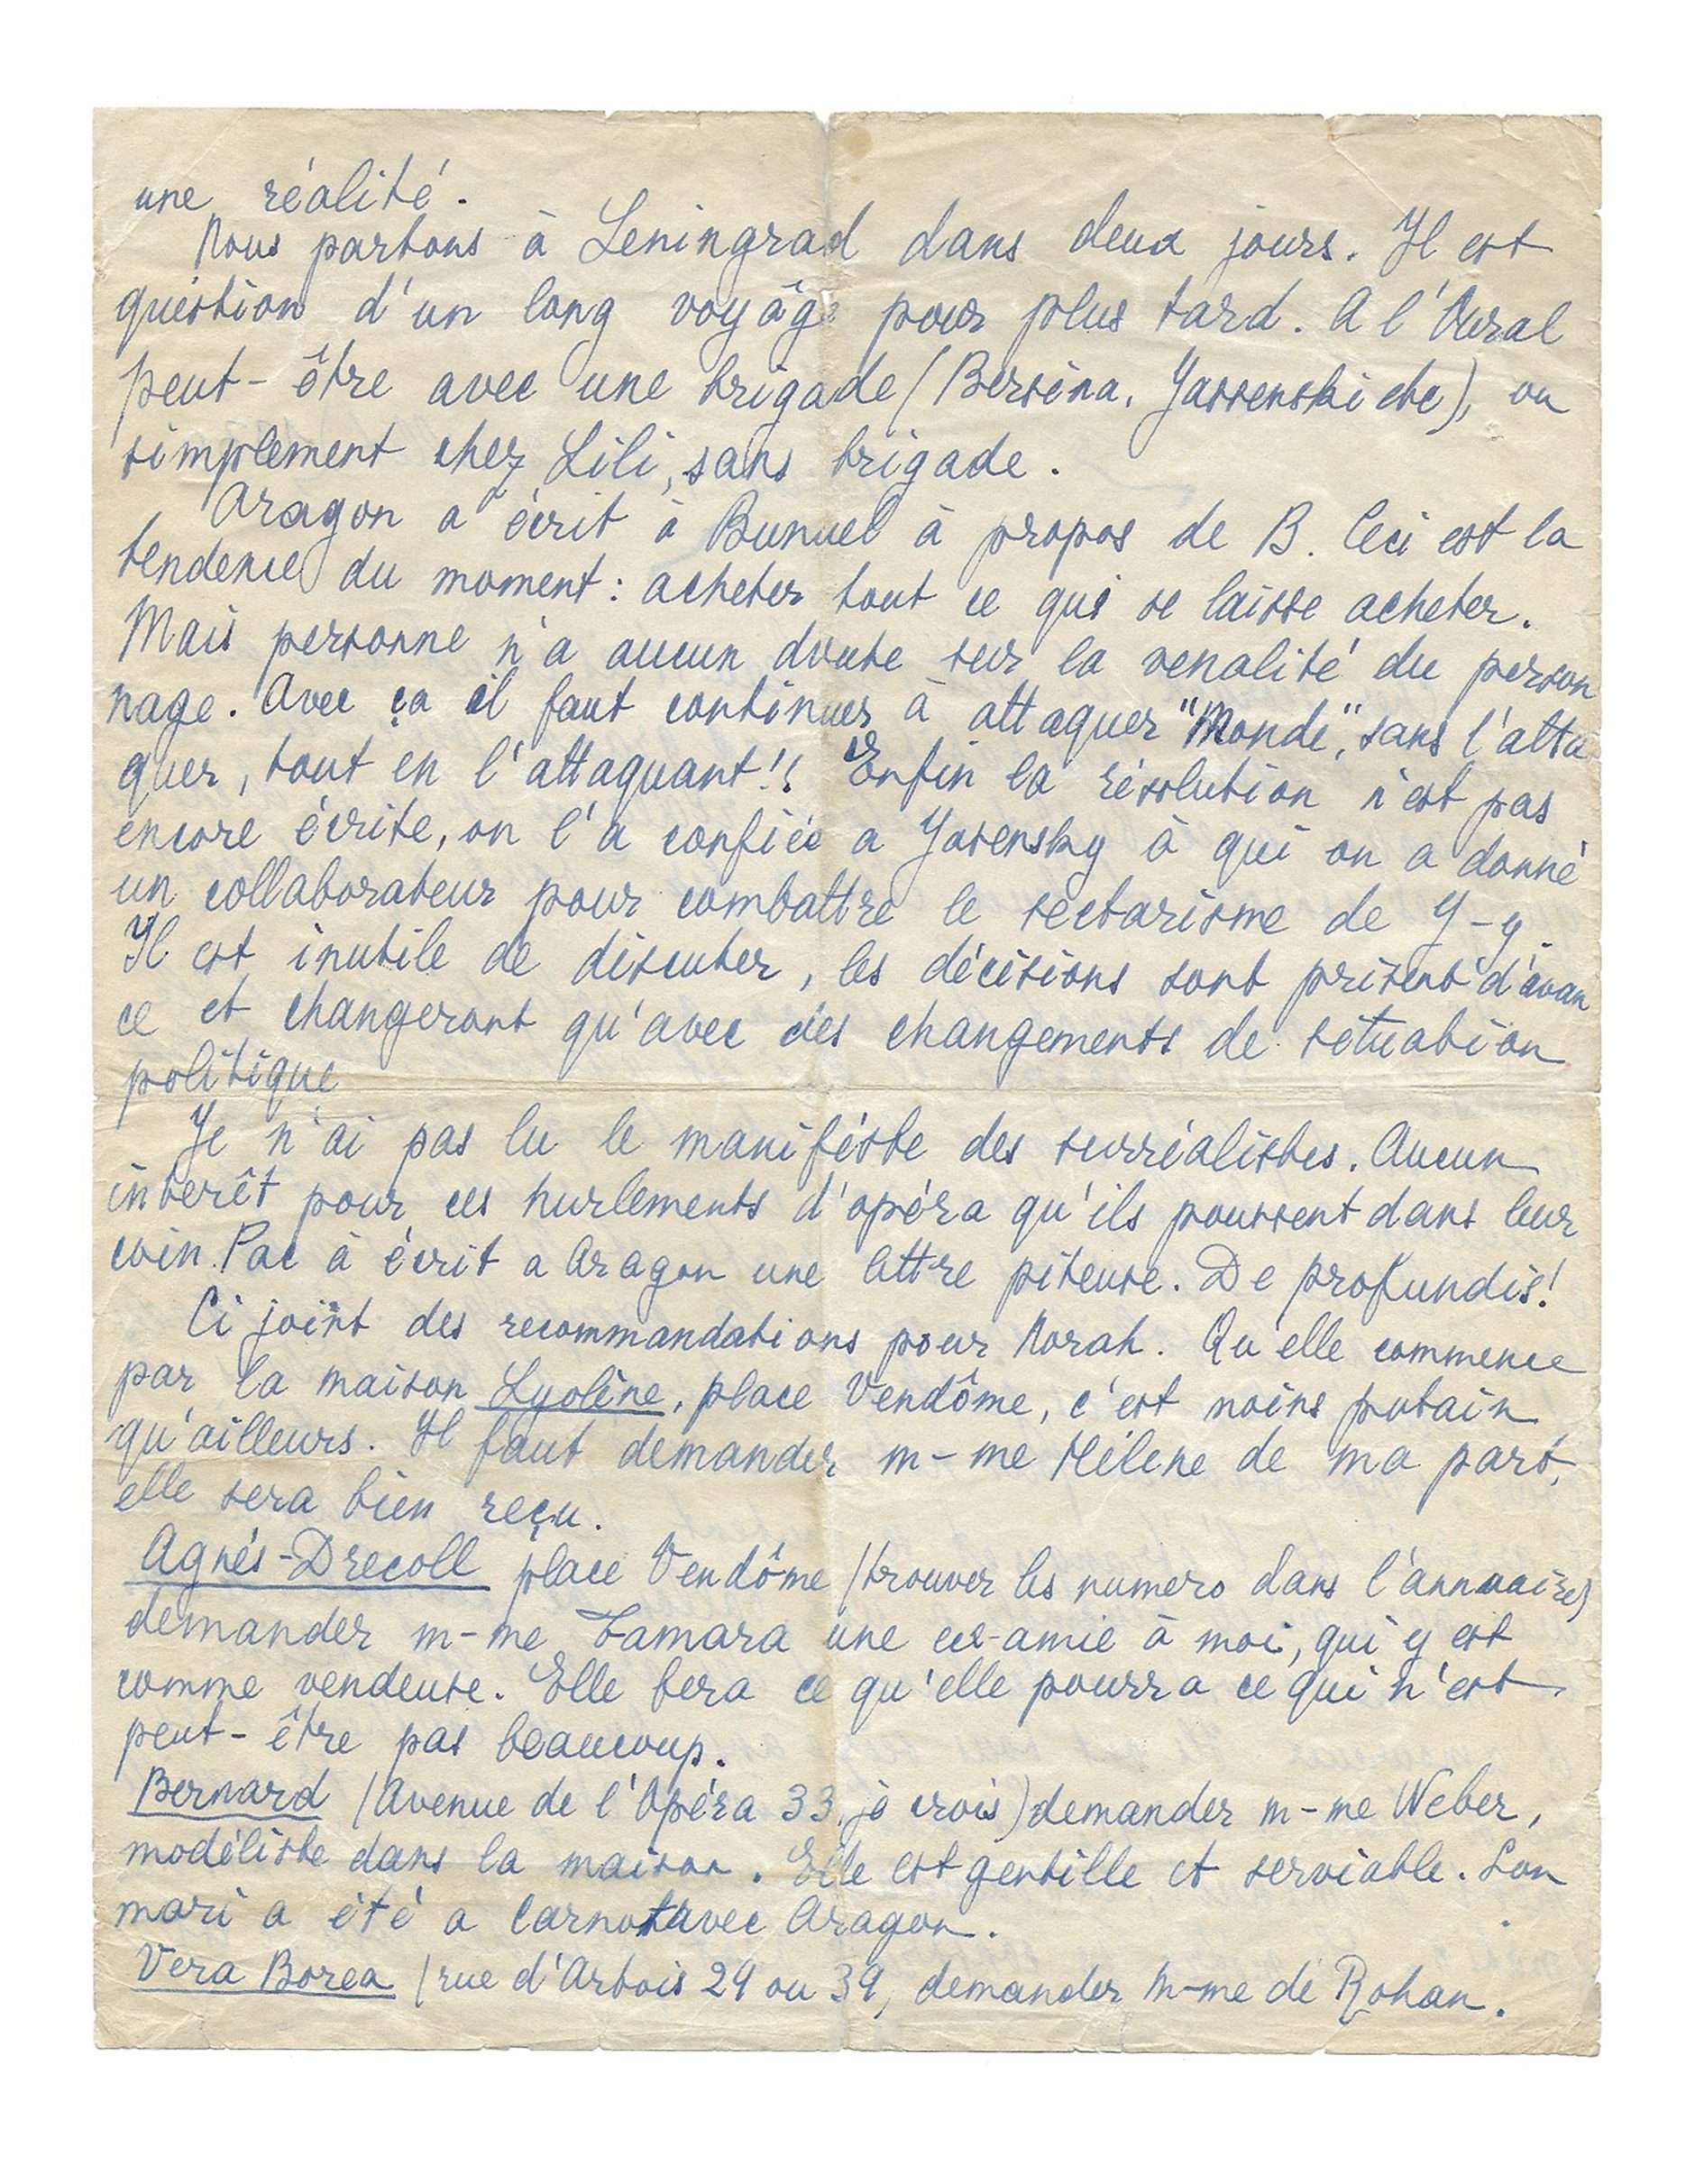 une réalité.
Nous partons à Leningrad dans deux jours. Il est
question d'un long voyâge pour plus tard. A l'Oural
peut-être avec une brigade (Berséna, Yassenski etc), ou
simplement chez Lili, sans brigade.
Aragon a écrit à Bunuel à propos de B. Ceci est la
tendence du moment: acheter tout ce qui se laisse acheter.
Mais personne n'a aucun doute sur la venalité du person
nage. Avec ça il faut continuer à attaquer "Monde", sans l'atta
quer, tout en l'attaquant!! Enfin la résolution n'est pas
encore écrite, on l'a confiée a Yasensky à qui on a donné
un collaborateur pour combattre le sectarisme de Y-y.
Il est inutile de discuter, les décisions sont prisent d'avan
ce et changeront qu'avec des changements de situation
politique
Je n'ai pas lu le maniféste des surréalistes. Aucun
interêt pour ces hurlements d'opéra qu'ils poussent dans leur
coin. Pac à écrit a Aragon une lettre piteuse. De profundis!
Ci joint des recommandations pour Norah. Qu'elle commence
par la maison Lyolène, place Vendôme, c'est moins putain
qu'ailleurs. Il faut demander m-me Hélène de ma part,
elle sera bien reçu.
Agnès-Drecoll place Vendôme (trouver les numero dans l'annuaire)
demander m-me Tamara une ex-amie à moi, qui y est
comme vendeuse. Elle fera ce qu'elle pourra ce qui n'est
peut-être pas beaucoup.
Bernard (Avenue de l'Opéra 33, je crois) demander m-me Weber,
modéliste dans la maison. Elle est gentille et serviable. Son
mari a été a Carnot avec Aragon.
Vera Borea (rue d'Artois 29 ou 39, demander m-me de Rohan.